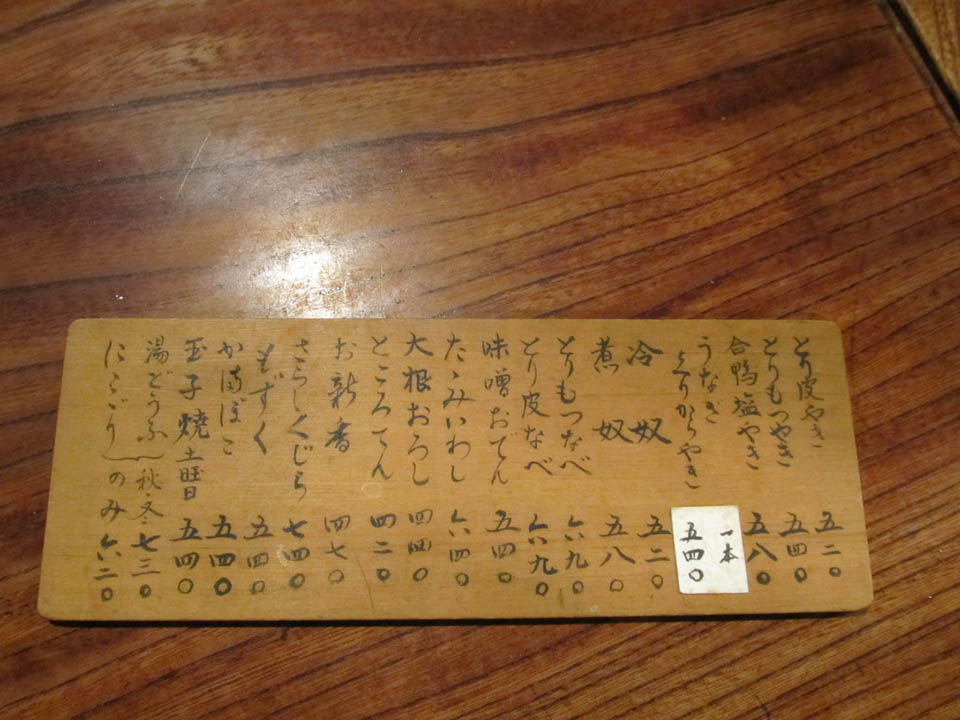 とり皮やき 五二〇
とりもつやき 五四〇
合鴨塩やき 五八〇
うなぎ
くりからやき 一本 五四〇
冷奴 五二〇
煮奴 五八〇
とりもつなべ 六九〇
とり皮なべ 六六九〇
味噌おでん 五四〇
たゝみいわし 六四〇
大根おろし 四四〇
ところてん 四二〇
お新香 四七〇
さらしくじら 七四〇
もずく 五四〇
かまぼこ 五四〇
玉子焼 土曜日 五四〇
湯どうふ 秋冬 七三〇
にこごり のみ 六二〇